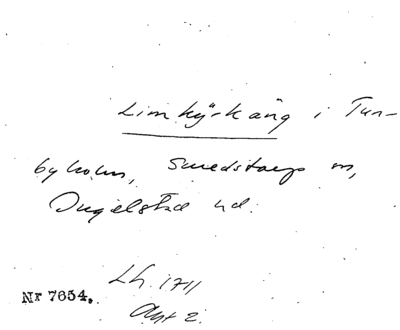 Limkyrkäng i Tun-
byholm, Smedstorps sn,
Ingelstad hd.
Lh. 1711
Akt 2.
Nr 7654.